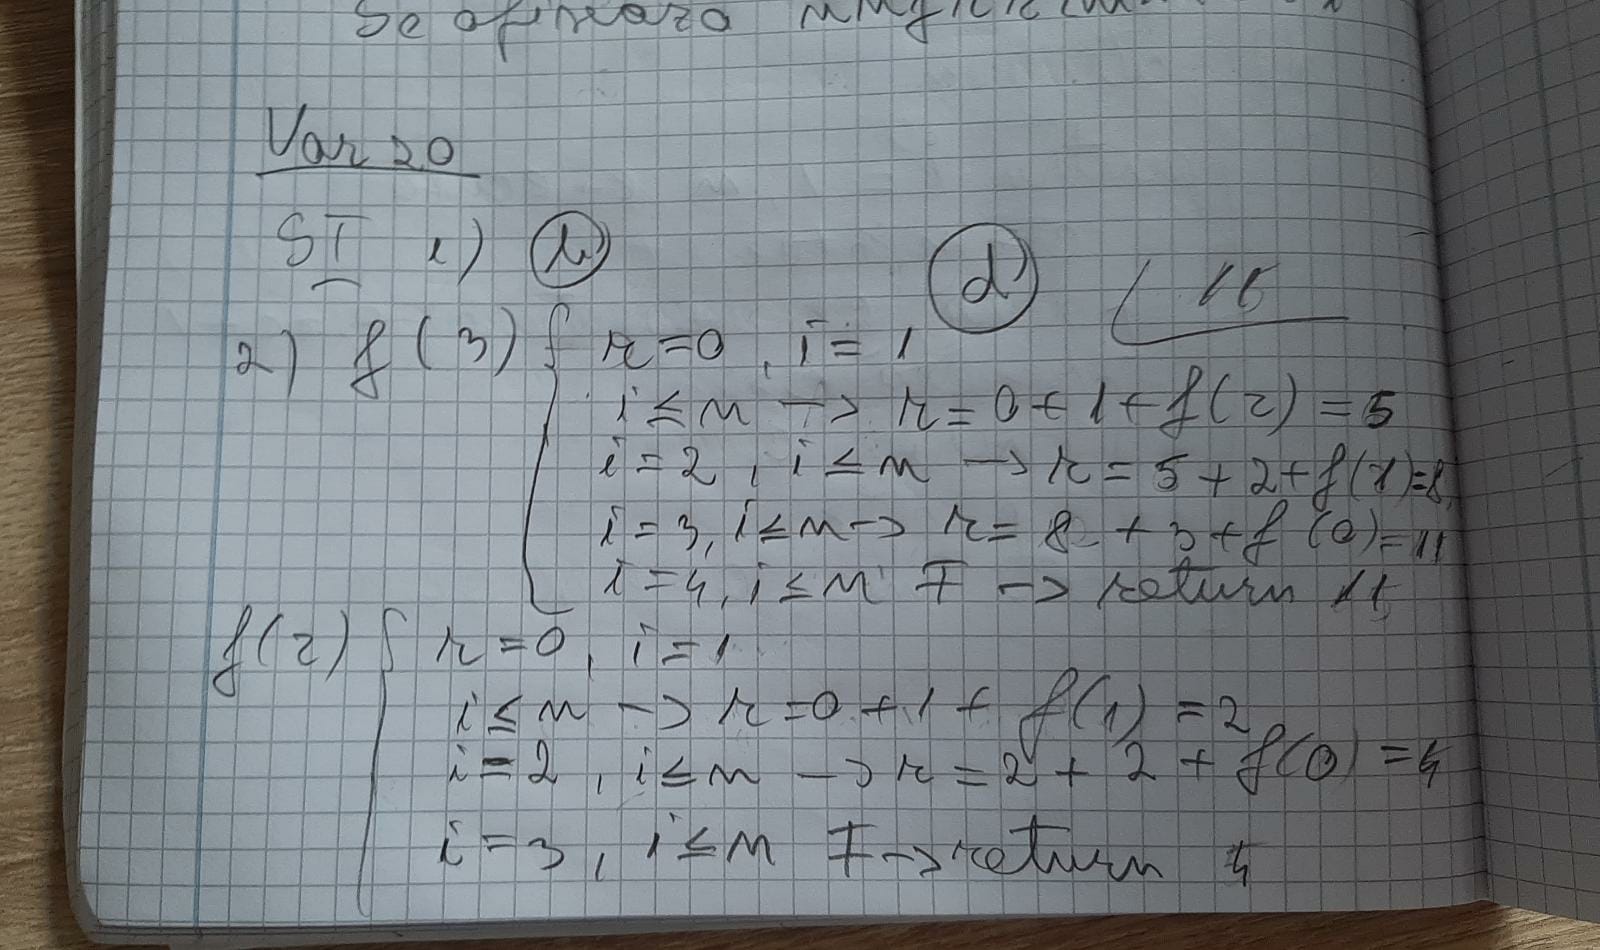 Se afișează
Var 20
SI 1)
d 11
2) f(3) { r=0, i=1
i≤n -> r=0+1+f(2)=5
i=2, i≤n -> r=5+2+f(1)=8
i=3, i≤n -> r=8+3+f(0)=11
i=4, i≤n F -> return 11
f(2) { r=0, i=1
i≤n -> r=0+1+f(1)=2
i=2, i≤n -> r=2+2+f(0)=4
i=3, i≤n F -> return 4